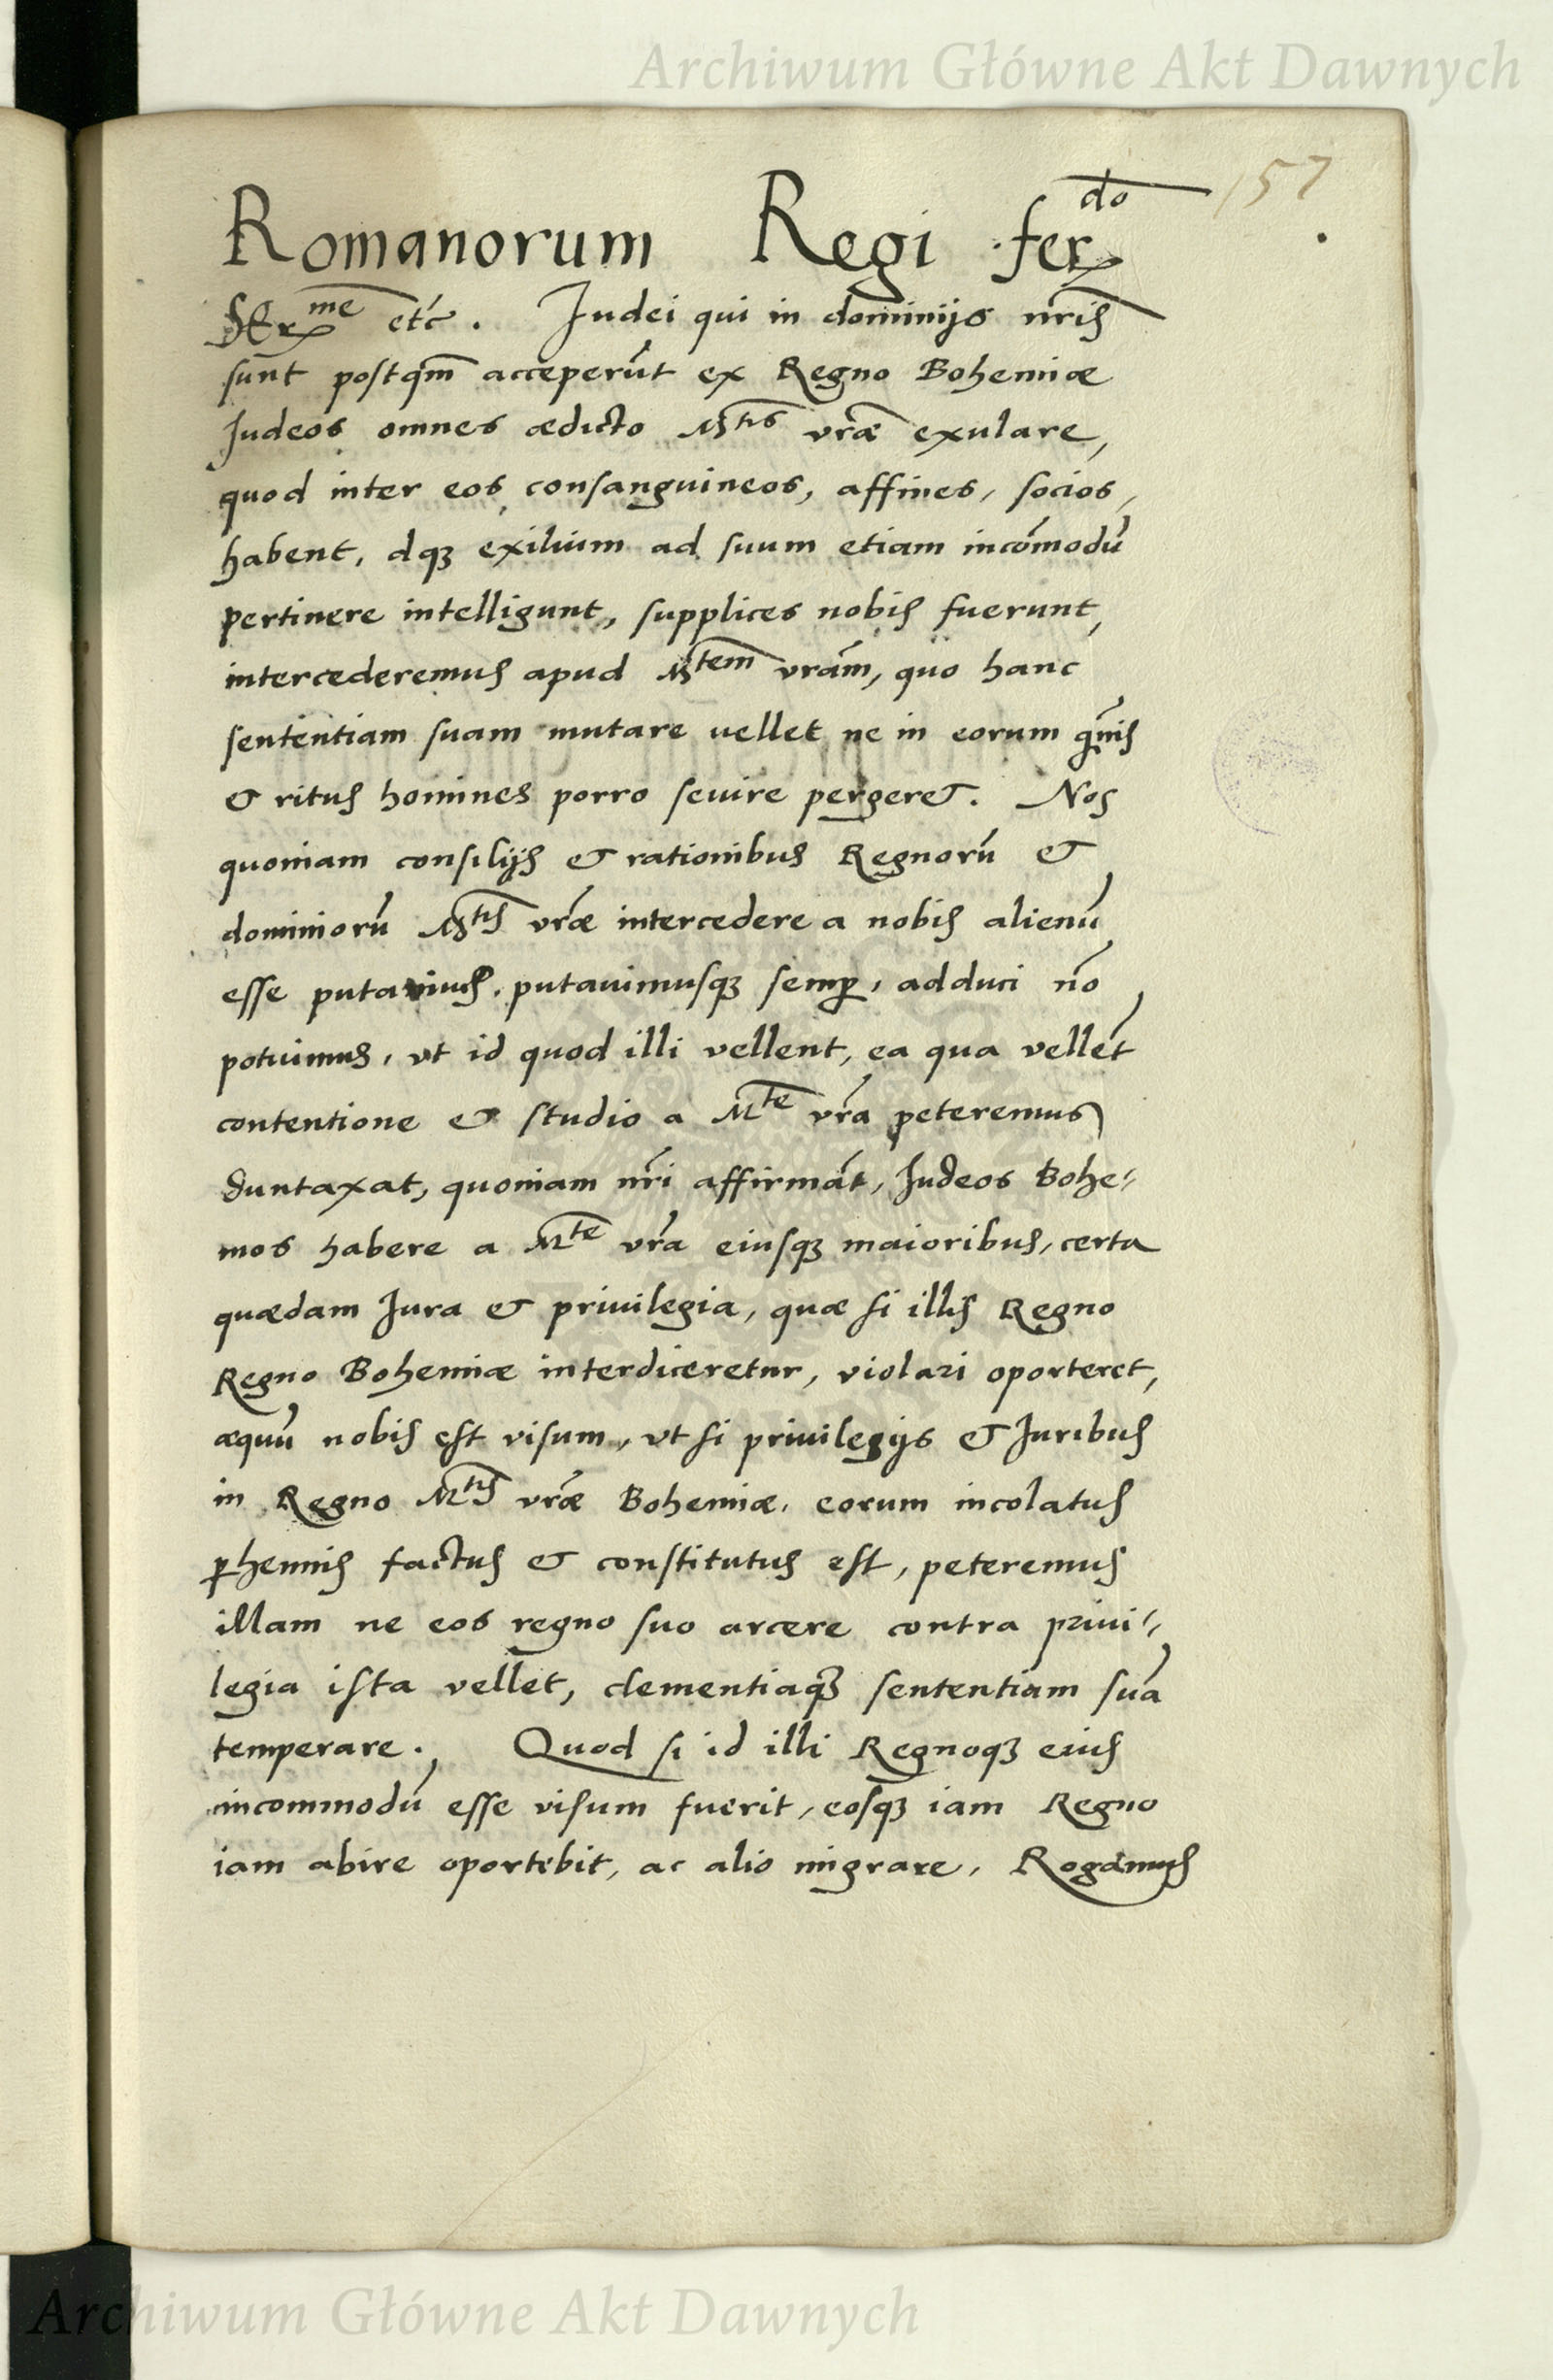 Archiwum Główne Akt Dawnych
157
Romanorum Regi fer^do
Ser^me etc. Judei qui in dominijs nris
sunt postqm acceperūt ex Regno Bohemiæ
Judeos omnes ædicto M^tis vræ exulare,
quod inter eos consanguineos, affines, socios,
habent, dqз exilium ad suum etiam incōmodū
pertinere intelligunt, supplices nobis fuerunt,
intercederemus apud M^tem vram, quo hanc
sententiam suam mutare vellet ne in eorum gnis
& ritus homines porro seuire pergeret. Nos
quoniam consilijs & rationibus Regnorū &
dominiorū M^tis vræ intercedere a nobis alienū
esse putamus. putauimusqз semp, adduci nō
potuimus, vt id quod illi vellent, ea qua vellēt
contentione & studio a M^te vra peteremus
duntaxat, quoniam nri affirmāt, Judeos Bohe-
mos habere a M^te vra eiusqз maioribus, certa
quædam Jura & priuilegia, quæ si illis Regno
Regno Bohemiæ interdiceretur, violari oporteret,
æquū nobis est visum, vt si priuilegijs & Juribus
in Regno M^tis vræ Bohemiæ, eorum incolatus
phennis factus & constitutus est, peteremus
illam ne eos regno suo arcere contra priui-
legia ista vellet, clementiaqз sententiam suā
temperare. Quod si id illi Regnoqз eius
incommodū esse visum fuerit, eosqз iam Regno
iam abire oportebit, ac alio migrare, Rogamus
Archiwum Główne Akt Dawnych